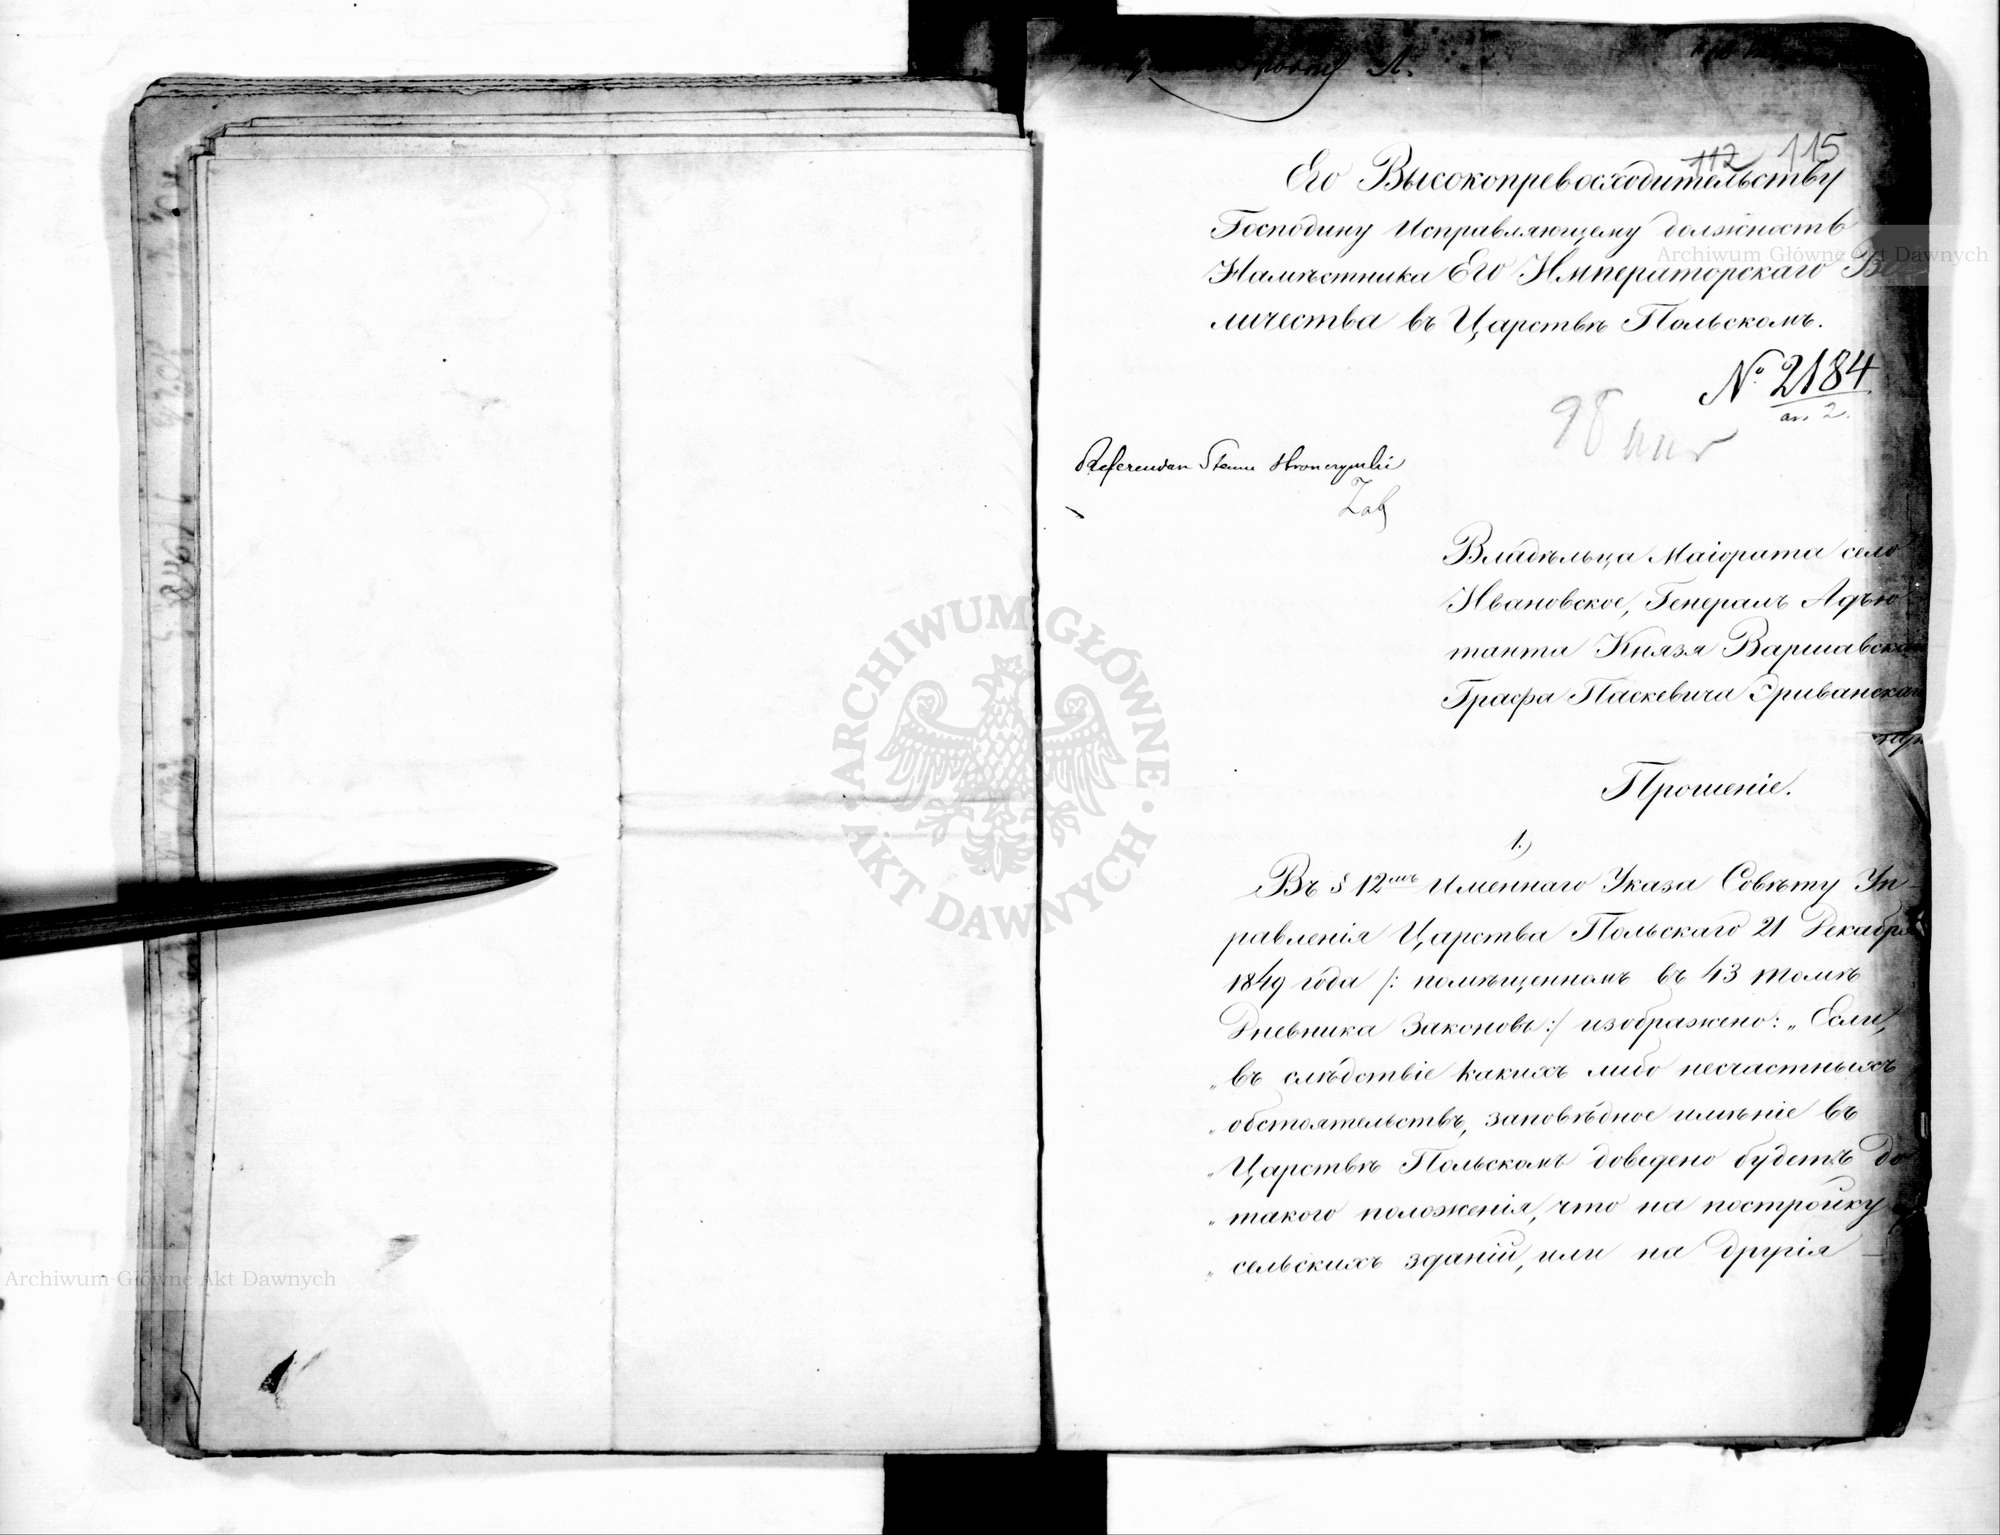 112 115
Его Высокопревосходительству
Господину Исправляющему должность
Намѣстника Его Императорскаго Ве
личества въ Царствѣ Польскомъ.
№ 2184
Referendarz Stanu
Владѣльца Маіората село
Ивановское, Генералъ Адъю
танта Князя Варшавскаго
Графа Паскевича Эриванскаго
Прошеніе.
1.)
Въ § 12мъ Именнаго Указа Совѣту Уп
равленія Царства Польскаго 21 Декабря
1849 года /: помѣщенномъ въ 43 томѣ
Дневника Законовъ :/ изображено: „Если,
„ въ слѣдствіе какихъ либо несчастныхъ
„ обстоятельствъ, заповѣдное имѣніе въ
„ Царствѣ Польскомъ доведено будетъ до
„ такого положенія, что на постройку
„ сельскихъ зданій, или на другія
ARCHIWUM GŁÓWNE · AKT DAWNYCH ·
Archiwum Główne Akt Dawnych
Archiwum Główne Akt Dawnych